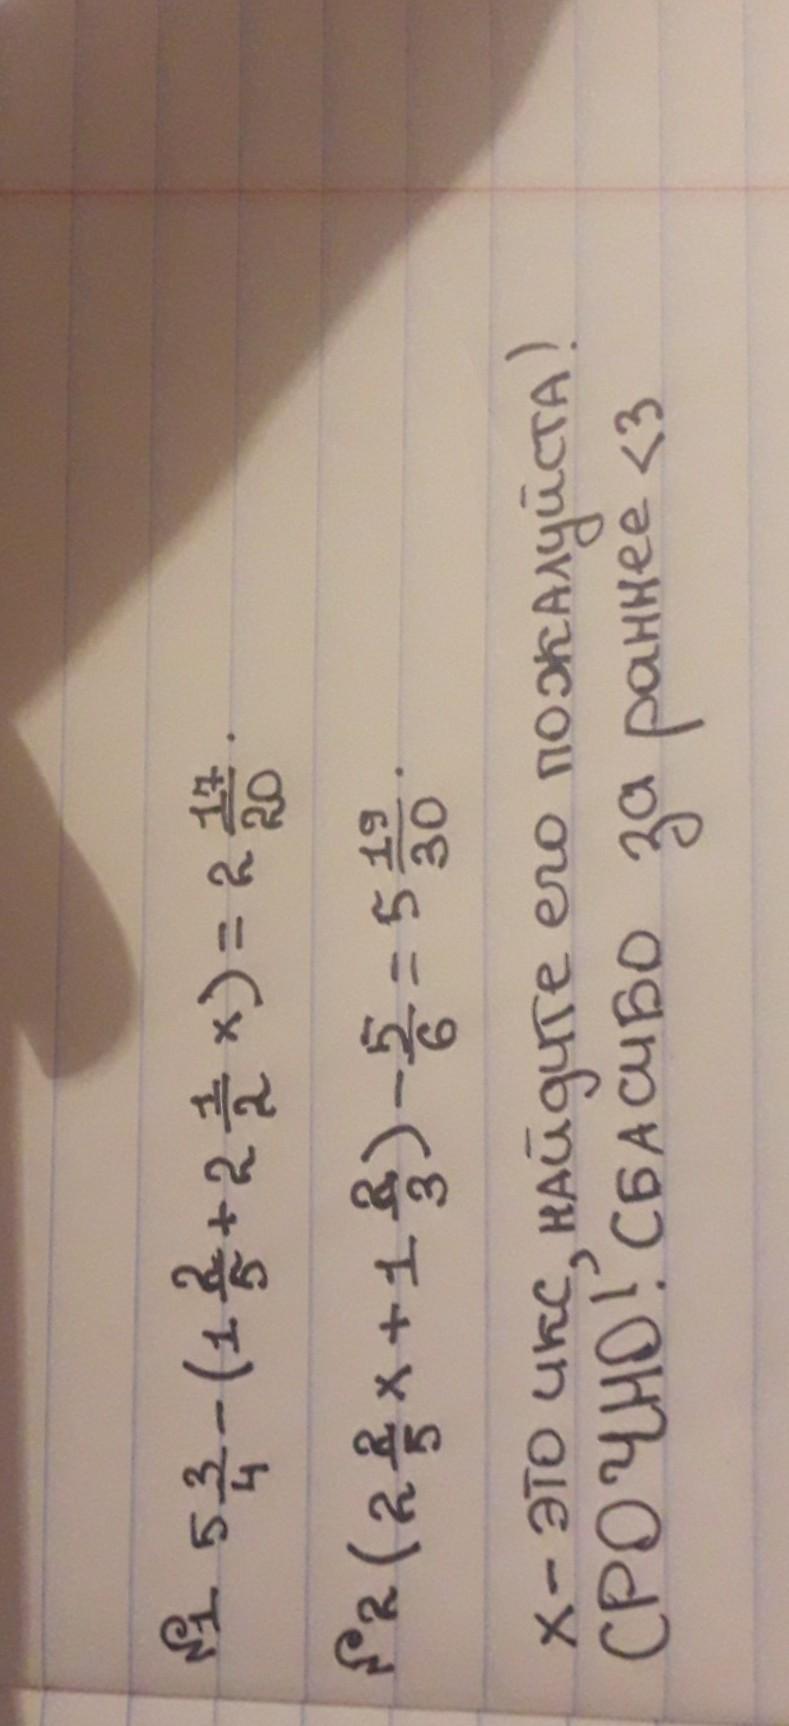 №1 5 3/4 - (1 2/5 + 2 1/2 x) = 2 17/20.
№2 (2 2/5 x + 1 2/3) - 5/6 = 5 19/30.
x - ЭТО икс, НАйдите его пожАлуйстА!
СРОЧНО! СБАСИБО за раннее <3